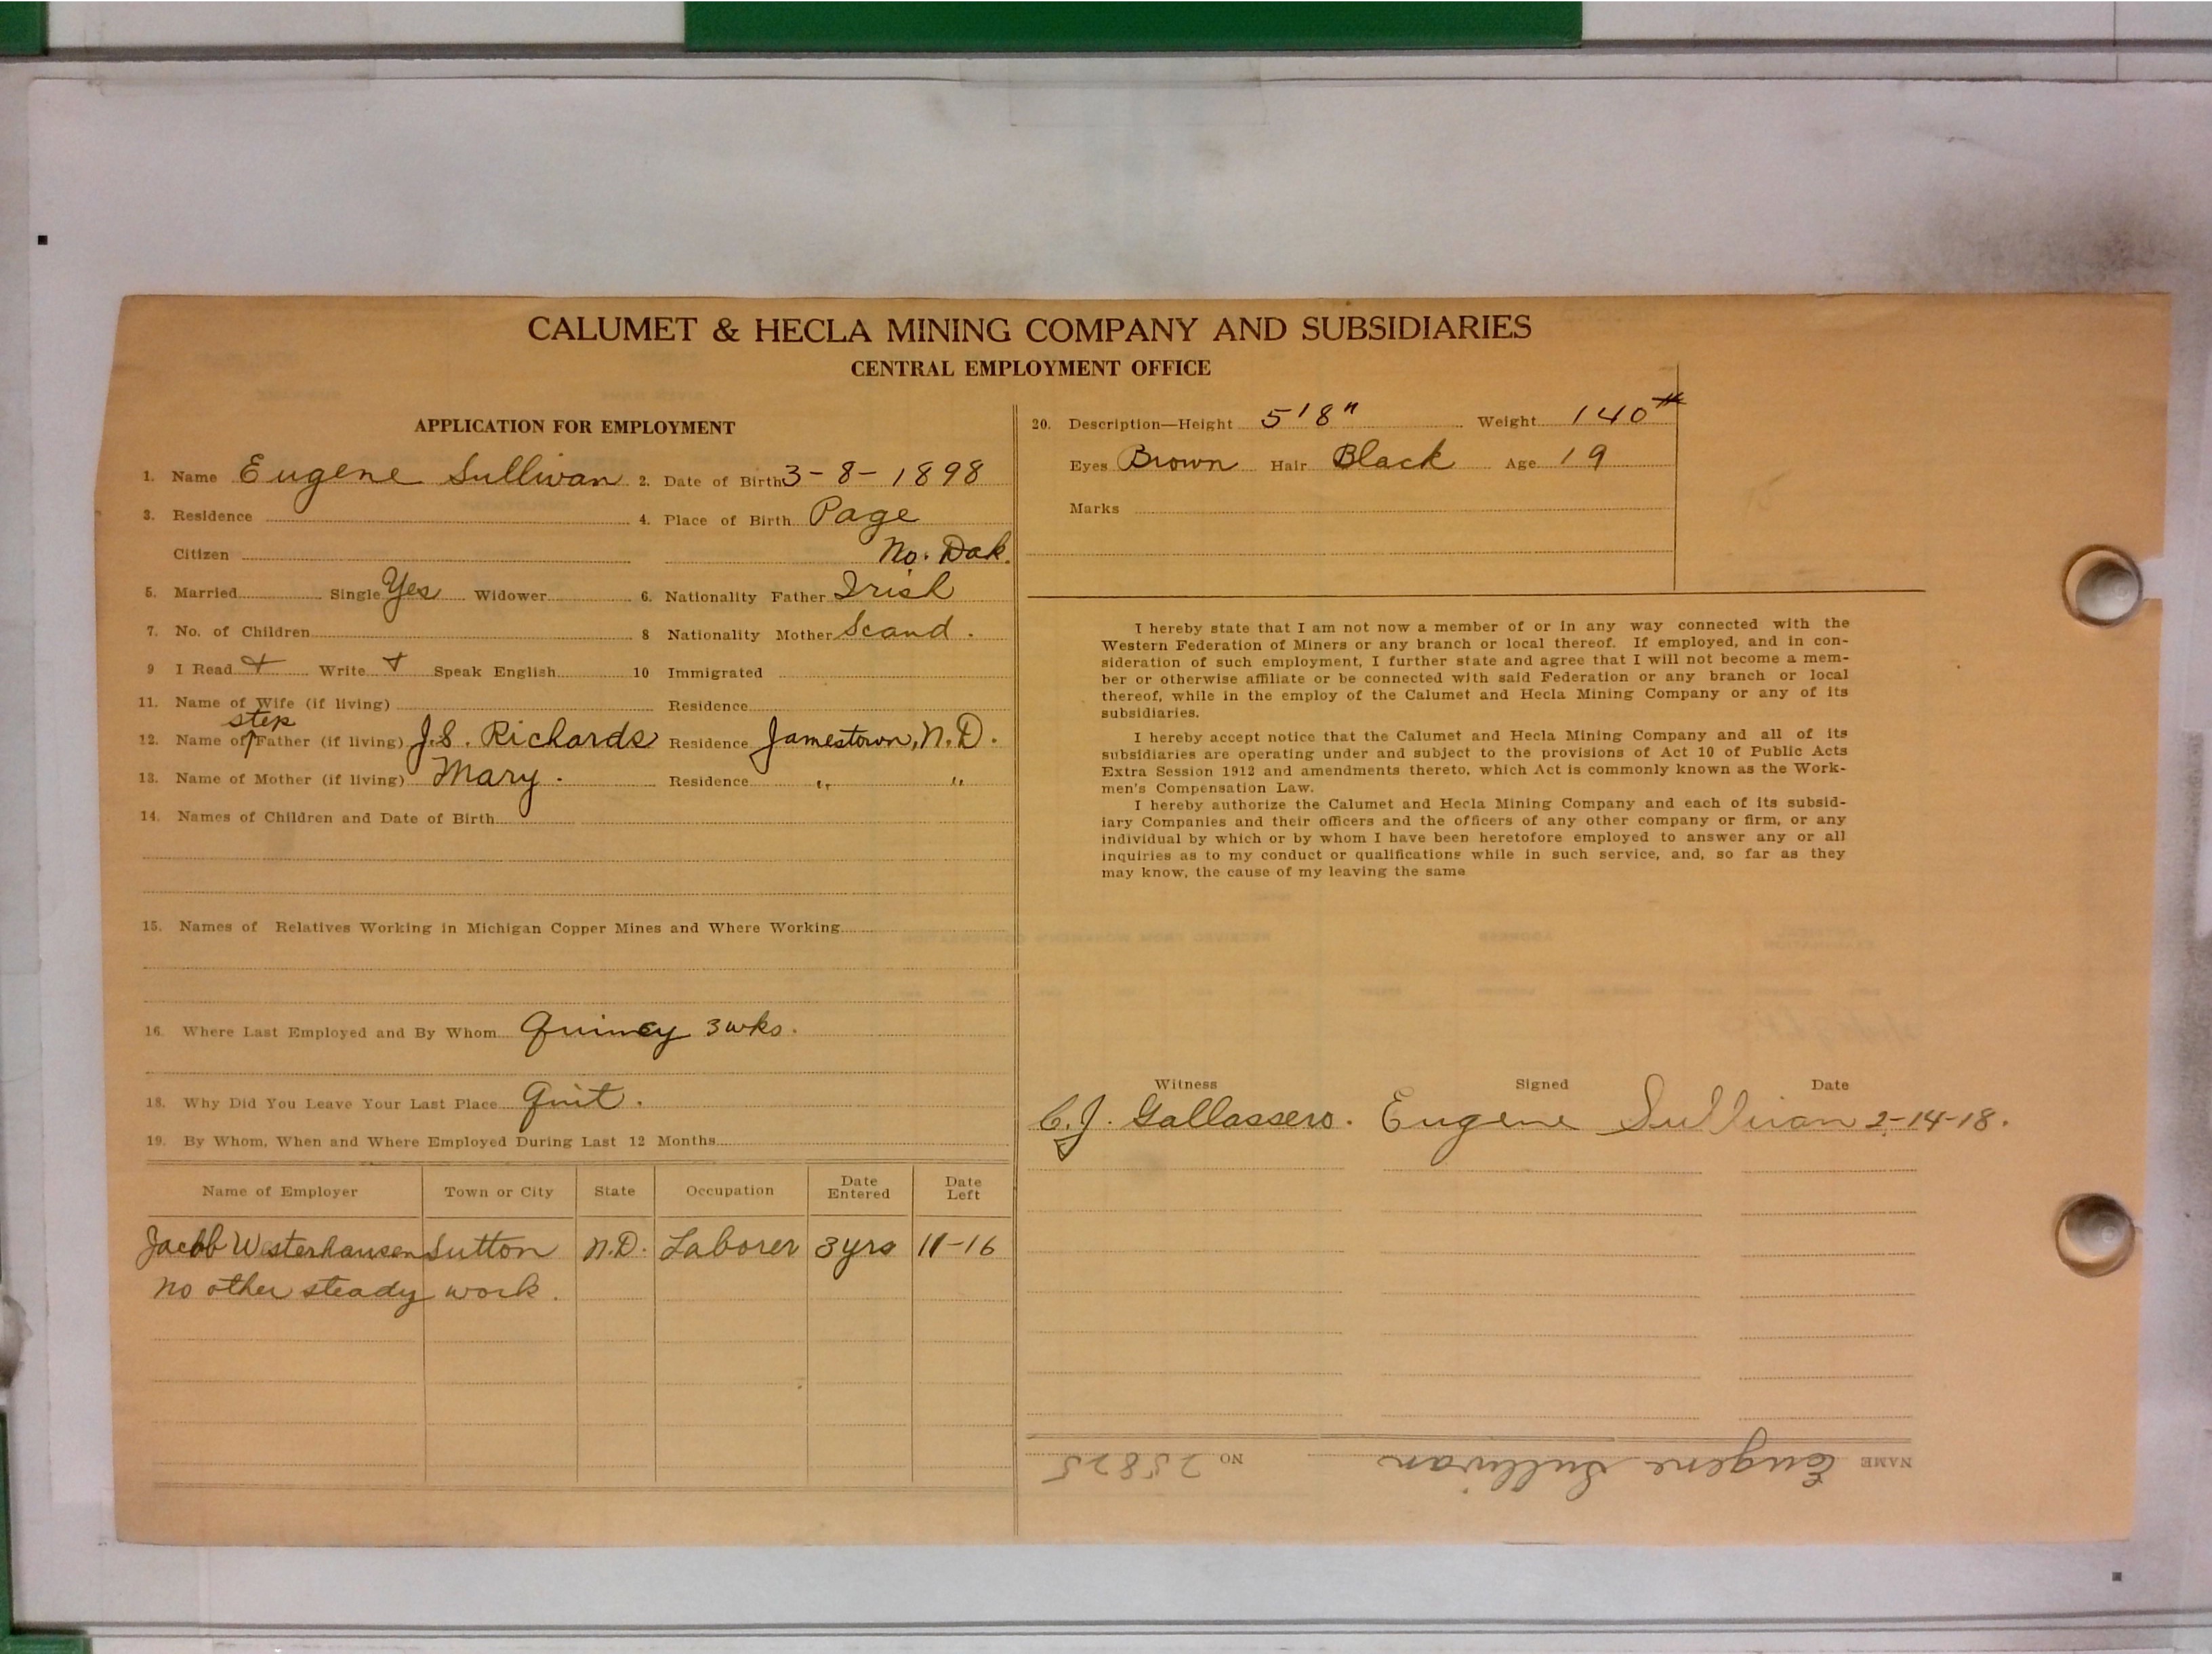 CALUMET & HECLA MINING COMPANY AND SUBSIDIARIES
CENTRAL EMPLOYMENT OFFICE
APPLICATION FOR EMPLOYMENT
1. Name Eugene Sullivan 2. Date of Birth 3-8-1898
3. Residence 4. Place of Birth Page
Citizen No. Dak.
5. Married Single Yes Widower 6. Nationality Father Irish
7. No. of Children 8 Nationality Mother Scand.
9 I Read + Write + Speak English 10 Immigrated
11. Name of Wife (if living) Residence
step
12. Name of Father (if living) J.S. Richards Residence Jamestown, N.D.
13. Name of Mother (if living) Mary. Residence " "
14. Names of Children and Date of Birth
15. Names of Relatives Working in Michigan Copper Mines and Where Working
16. Where Last Employed and By Whom Quincy 3 wks.
18. Why Did You Leave Your Last Place Quit.
19. By Whom, When and Where Employed During Last 12 Months
Name of Employer Town or City State Occupation Date Entered Date Left
Jacob Westerhausen Sutton N.D. Laborer 3 yrs 11-16
no other steady work.
20. Description—Height 5'8" Weight 140 #
Eyes Brown Hair Black Age 19
Marks
I hereby state that I am not now a member of or in any way connected with the
Western Federation of Miners or any branch or local thereof. If employed, and in con-
sideration of such employment, I further state and agree that I will not become a mem-
ber or otherwise affiliate or be connected with said Federation or any branch or local
thereof, while in the employ of the Calumet and Hecla Mining Company or any of its
subsidiaries.
I hereby accept notice that the Calumet and Hecla Mining Company and all of its
subsidiaries are operating under and subject to the provisions of Act 10 of Public Acts
Extra Session 1912 and amendments thereto, which Act is commonly known as the Work-
men's Compensation Law.
I hereby authorize the Calumet and Hecla Mining Company and each of its subsid-
iary Companies and their officers and the officers of any other company or firm, or any
individual by which or by whom I have been heretofore employed to answer any or all
inquiries as to my conduct or qualifications while in such service, and, so far as they
may know, the cause of my leaving the same
Witness Signed Date
C.J. Gallassero. Eugene Sullivan 2-14-18.
NAME Eugene Sullivan NO 25825